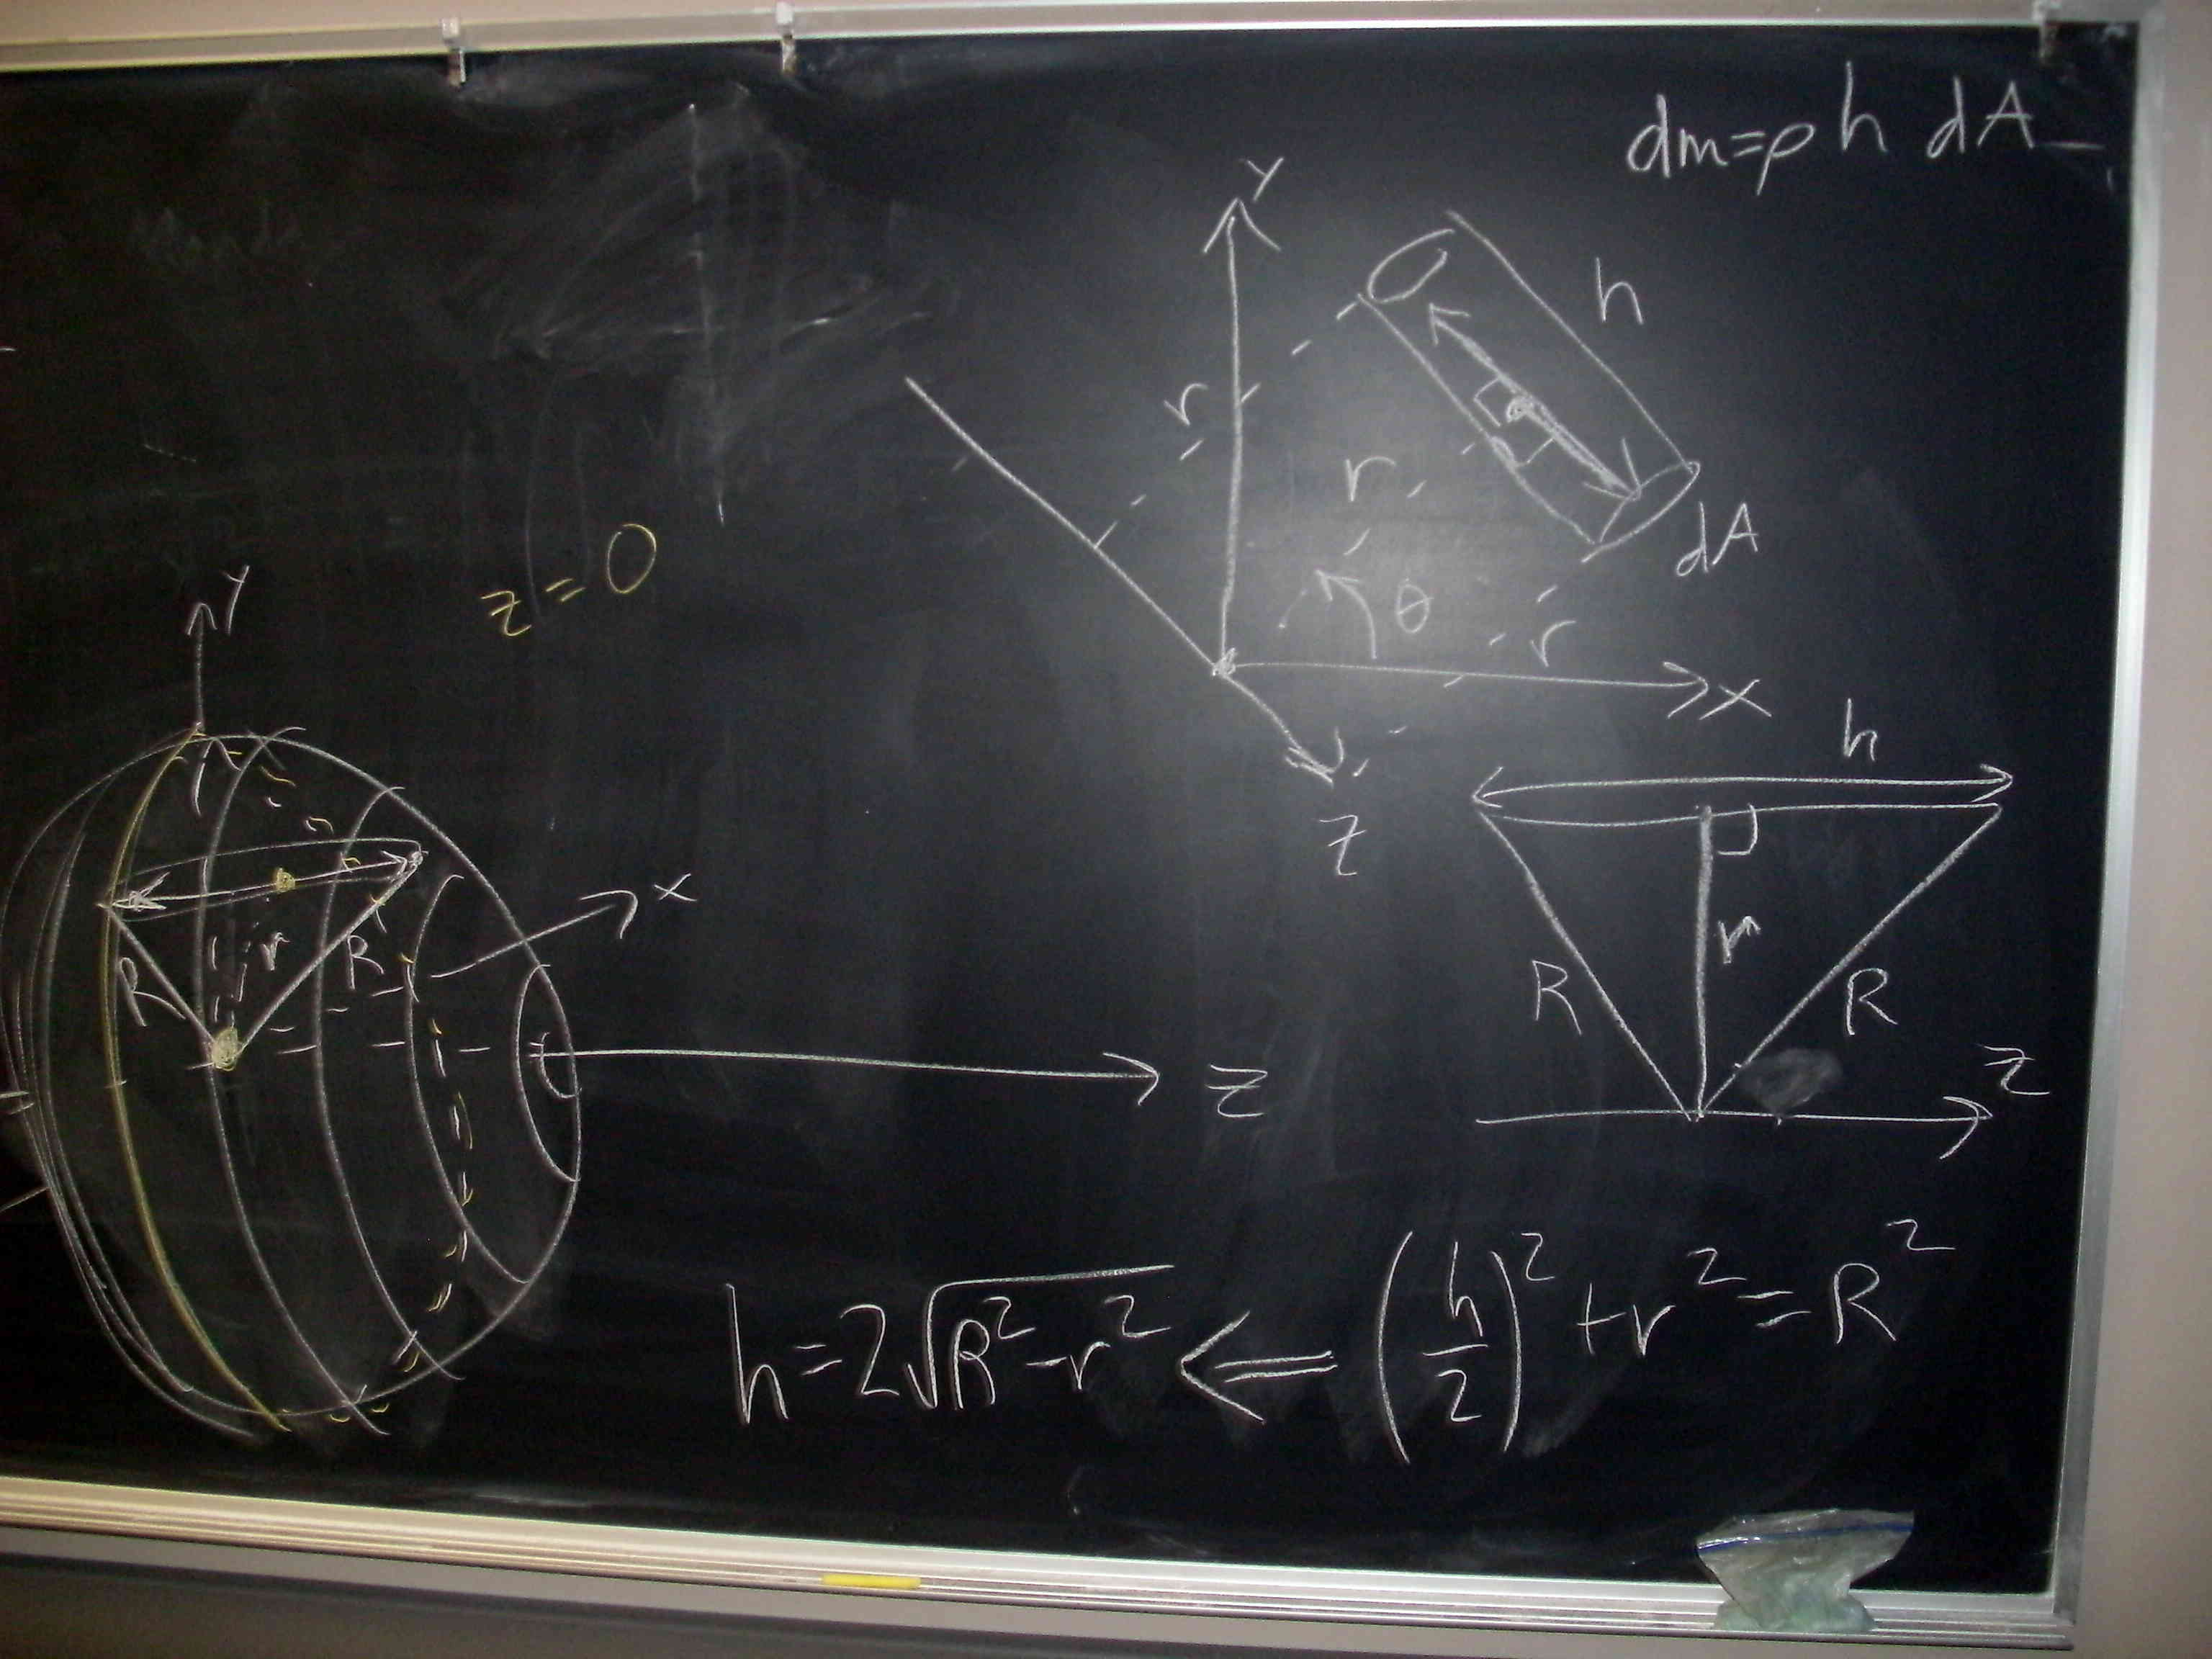 dm=ρ h dA
Y
h
r
r
dA
θ
r
X
Z
z=0
Y
X
R
r
R
Z
h
r
R
R
Z
h=2√(R²-r²) ⇐ (h/2)²+r²=R²